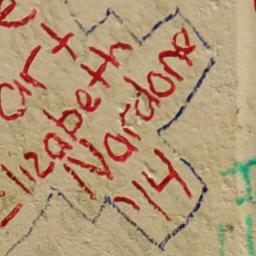 art
Elizabeth
Nardone
'14